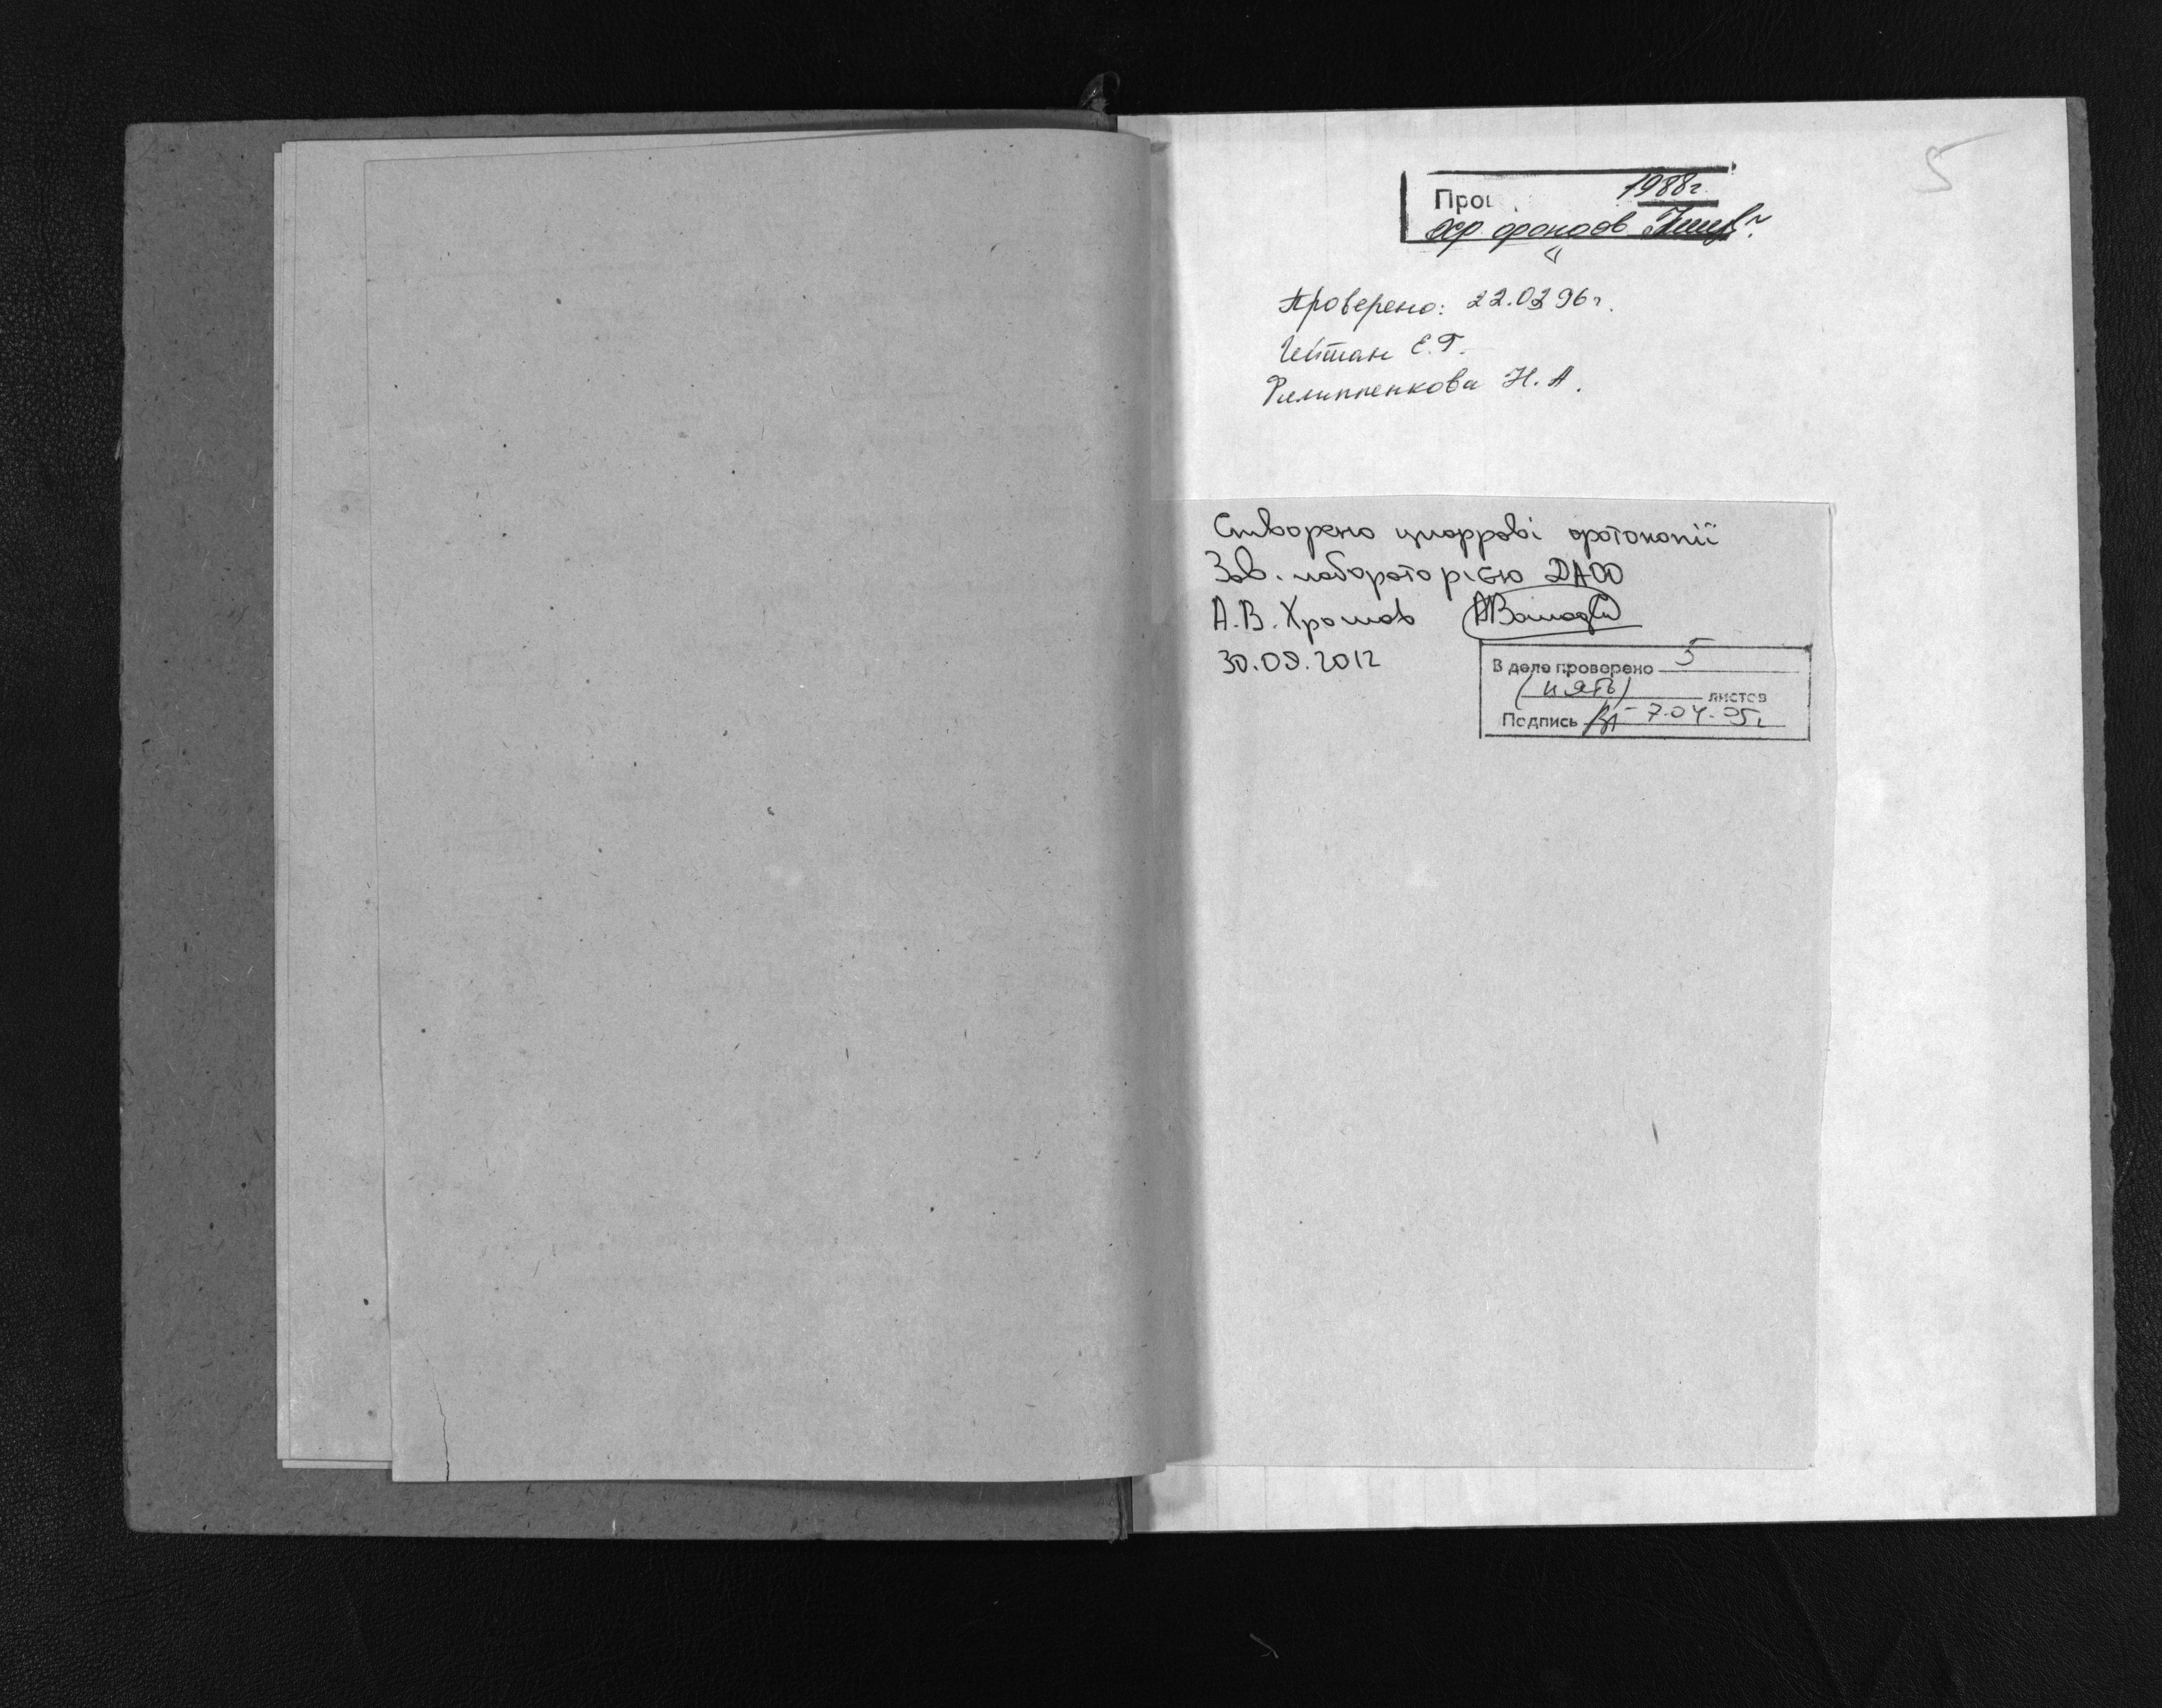 5
1988г.
хр. фондов
Проверено: 22.03 96г.
Цейтман Е.Г.
Филиппенкова Н.А.
Створено цифрові фотокопії
Зав. лабораторією ДАОО
А.В. Хромов
30.09.2012
В деле проверено 5
(пять) листов
Подпись 7.04.05г